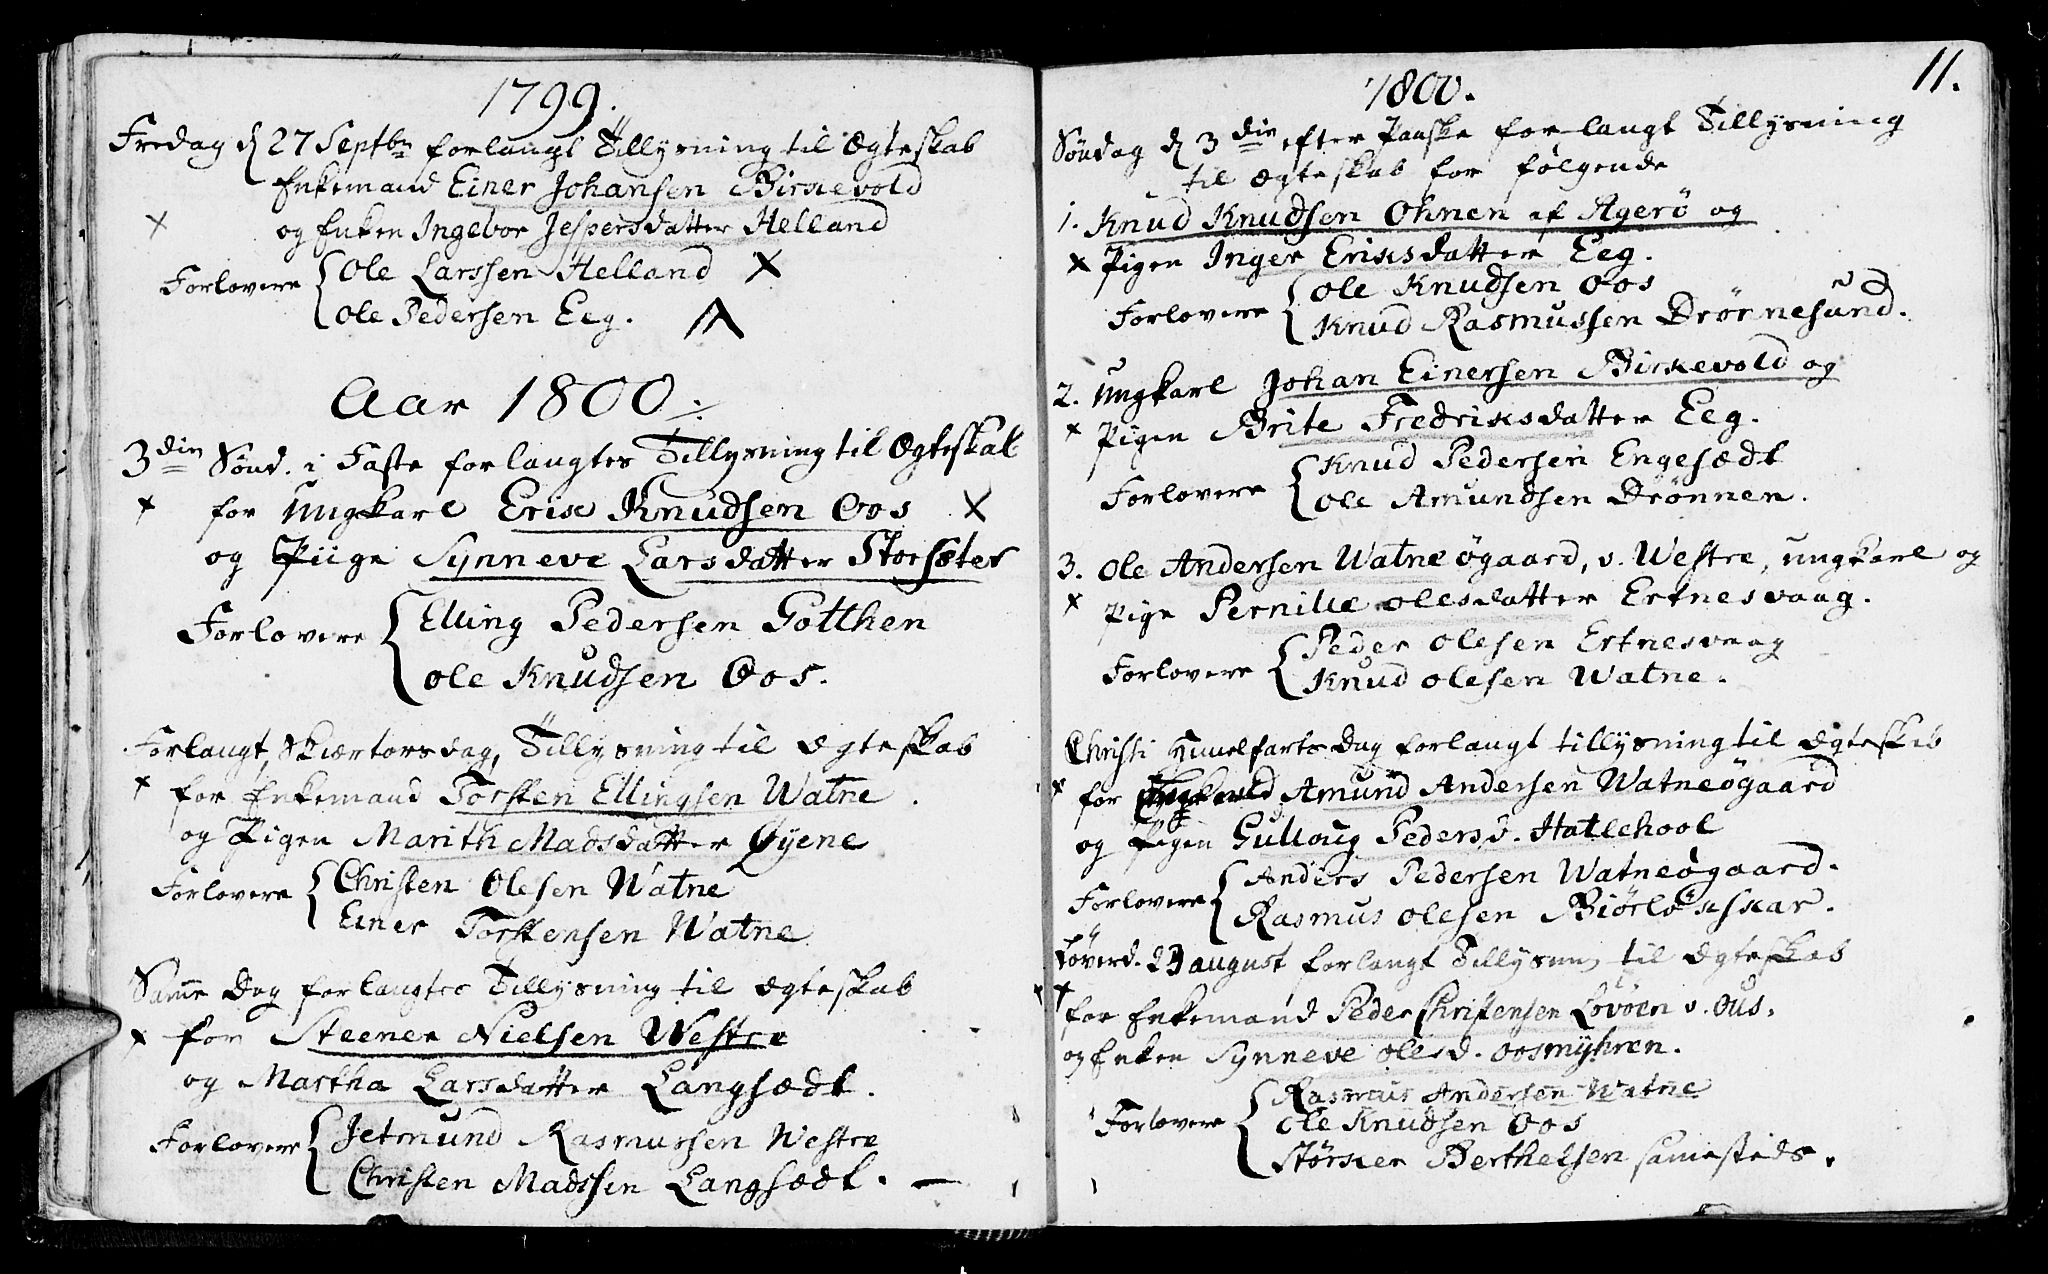 1799.
Fredag d 27 Septbr forlangt Tillysning til Ægteskab
Enkemand Einer Johansen Birkevold
og Enken Ingebor Jespersdatter Helland
Forlovere Ole Larssen Helland
Ole Pedersen Eeg.
Aar 1800
3die Sønd. i Faste forlangtes Tillysning til Ægteskab
for Ungkarl Erik Knudsen Oos
og Piige Synneve Larsdatter Storsæter
Forlovere Elling Pedersen Gotthen
Ole Knudsen Oos.
Forlangt, Skiærtorsdag, Tillysning til Ægteskab
for Enkemand Torsten Ellingsen Watne
og Pigen Marith Madsdatter Øyene
Forlovere Christen Olesen Watne
Einer Torstensen Watne
Samme Dag forlangtes Tillysning til Ægteskab
for Steener Nielsen Westre
og Martha Larsdatter Langsædt.
Forlovere Jetmund Rasmussen Westre
Christen Madssen Langsædt.
11.
1800.
Søndag d 3die efter Paaske forlangt Tillysning
til Ægteskab for følgende
1. Knud Knudsen Ohnen af Agerö og
Pigen Inger Eriksdatter Eeg.
Forlovere Ole Knudsen Oos
Knud Rasmussen Drønnesund.
2. Ungkarl Johan Einersen Birkevold og
Pigen Brite Fredriksdatter Eeg.
Forlovere Knud Pedersen Engesædt
Ole Amundsen Drønnen.
3. Ole Andersen Watneøgaard, v. Westre, ungkarl og
Pige Pernille Olesdatter Ertnesvaag.
Forlovere Peder Olesen Ertnesvaag
Knud Olesen Watne.
Christi Himelfarts Dag forlangt tillysning til Ægteskab
for Amund Andersen Watneøgaard
og Pigen Gulloug Pedersd. Hatlehool
Forlovere Anders Pedersen Watneøgaard.
Rasmus Olesen Biörlökskar.
Løverd. 23 august forlangt Tillysning til Ægteskab
for Enkemand Peder Christensen Lovöen v. Ous,
og Enken Synneve Olesd. Oosmyhren.
Forlovere Rasmus Andersen Watne
Ole Knudsen Oos
Størker Berthelsen samesteds.